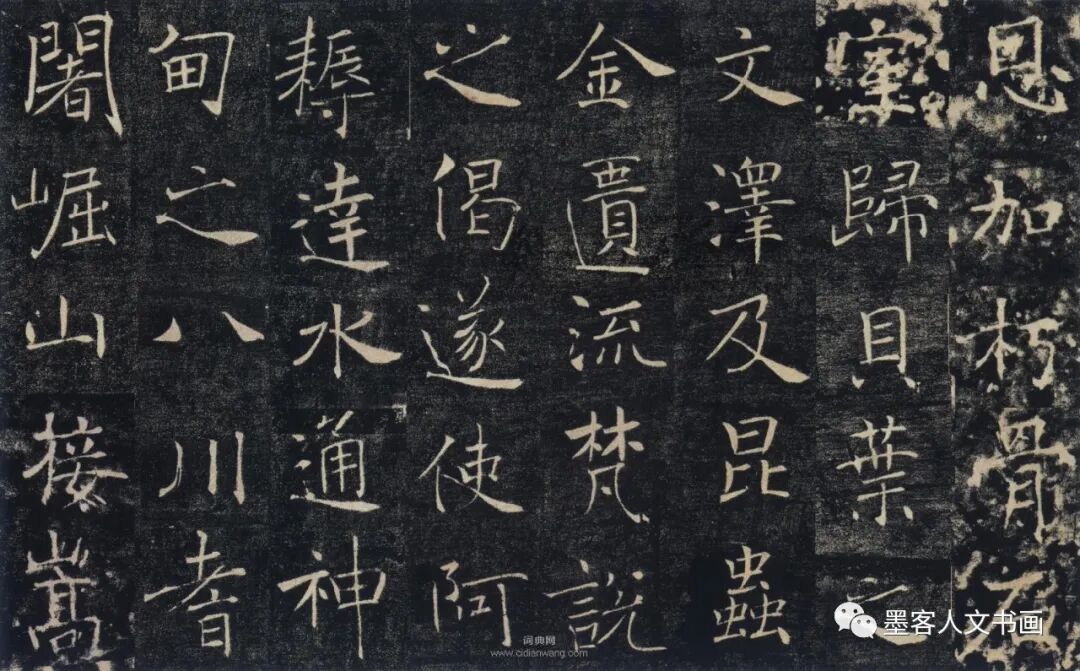 恩加朽骨石
室歸貝葉之
文澤及昆蟲
金匱流梵説
之偈遂使阿
耨達水通神
甸之八川耆
闍崛山接嵩
词典网
www.cidianwang.com
墨客人文书画